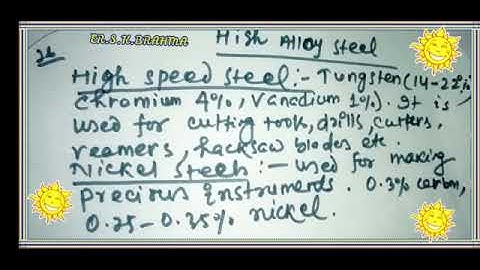 ER.S.K.BRAHMA
High Alloy Steel
26
High speed steel:- Tungsten(14-22%,
Chromium 4%, Vanadium 1%). It is
used for cutting tools, drills, cutters,
reamers, hacksaw blades etc.
Nickel steel:- used for making
precious instruments. 0.3% carbon,
0.25-0.35% nickel.